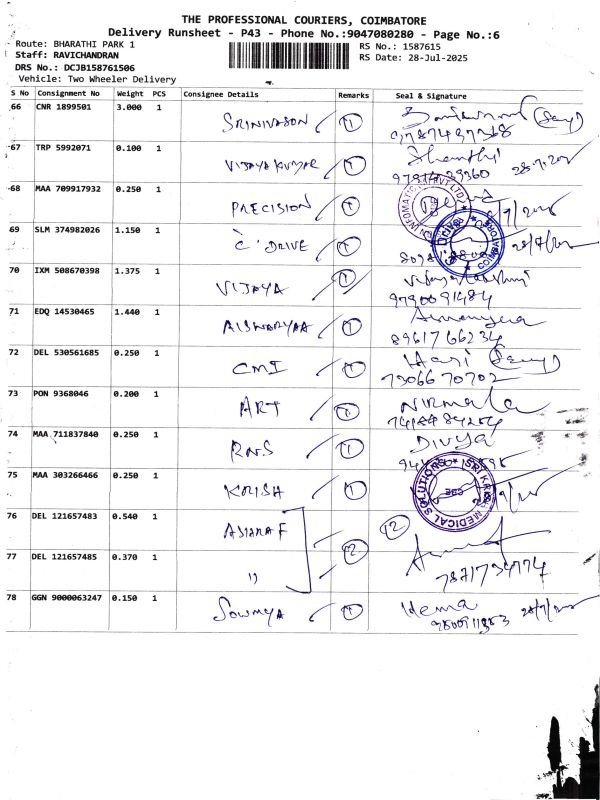 THE PROFESSIONAL COURIERS, COIMBATORE
Delivery Runsheet - P43 - Phone No.:9047080280 - Page No.:6
Route: BHARATHI PARK 1
RS No.: 1587615
Staff: RAVICHANDRAN
RS Date: 28-Jul-2025
DRS No.: DCJB158761506
Vehicle: Two Wheeler Delivery
S No Consignment No Weight PCS Consignee Details Remarks Seal & Signature
66 CNR 1899501 3.000 1 SRINIVASON 1
67 TRP 5992071 0.100 1 VIJAYAKUMAR 1 Shanthi
68 MAA 709917932 0.250 1 PRECISION 1
69 SLM 374982026 1.150 1 C'DRIVE 1
70 IXM 508670398 1.375 1 VIJAYA 1 Vijayalakshmi
9790091484
71 EDQ 14530465 1.440 1 AISWARYAA 1
8961766234
72 DEL 530561685 0.250 1 CMI 1 Hari
7306670702
73 PON 9368046 0.200 1 ART 1 NIRMALA
74 MAA 711837840 0.250 1 RNS 1 DIVYA
75 MAA 303266466 0.250 1 KRISH 1 SRI KRISH MEDICAL SOLUTIONS
76 DEL 121657483 0.540 1 12
77 DEL 121657485 0.370 1 " 2
7871734174
78 GGN 9000063247 0.150 1 SOWMYA 1 Hema